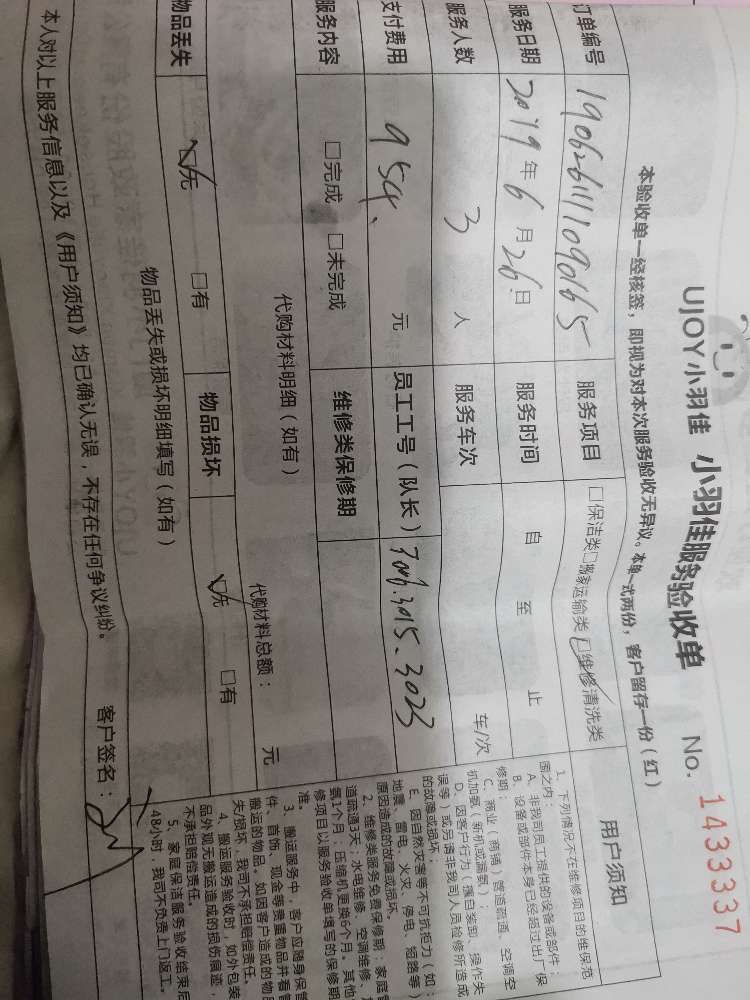 UJOY小羽佳 小羽佳服务验收单 No. 1433337
本验收单一经核签，即视为对本次服务验收无异议。本单一式两份，客户留存一份（红）
订单编号 19062611109065 服务项目 □保洁类□搬家运输类□维修清洗类
服务日期 2019年6月26日 服务时间 自 至 止
服务人数 3 人 服务车次 车/次
支付费用 954. 元 员工工号（队长） 3015.3023
服务内容 □完成 □未完成 维修类保修期
代购材料明细（如有） 代购材料总额： 元
物品丢失 □无 □有 物品损坏 □无 □有
物品丢失或损坏明细填写（如有）
本人对以上服务信息以及《用户须知》均已确认无误，不存在任何争议纠纷。 客户签名：
用户须知
1、下列情况不在维修项目的维保范
围之内：
A、非我司员工提供的设备或部件；
B、设备或部件本身已经超过出厂保
修期；
C、商业（商铺）管道疏通、空调至
机加氨（新机或漏氨）；
D、因客户行为（擅自装卸、操作失
误等）或另请非我司人员检修所造成
的故障或损坏；
E、因自然灾害等不可抗拒力（如：
地震、雷电、火灾、停电、短路等）
原因造成的故障或损坏。
2、维修类服务免费保修期：家庭管
道疏通3天；水电维修、空调维修、
氨1个月；压缩机更换6个月。其他
修项目以服务验收单填写的保修期
准。
3、搬运服务中，客户应随身保管
件、首饰、现金等贵重物品并看管
搬运的物品。如因客户造成的物品
失/损坏，我司不承担赔偿责任。
4、搬运服务验收时，如外包装
品外观无搬运造成的损伤痕迹，
不承担赔偿责任。
5、家庭保洁服务验收结束后
48小时，我司不负责上门返工。